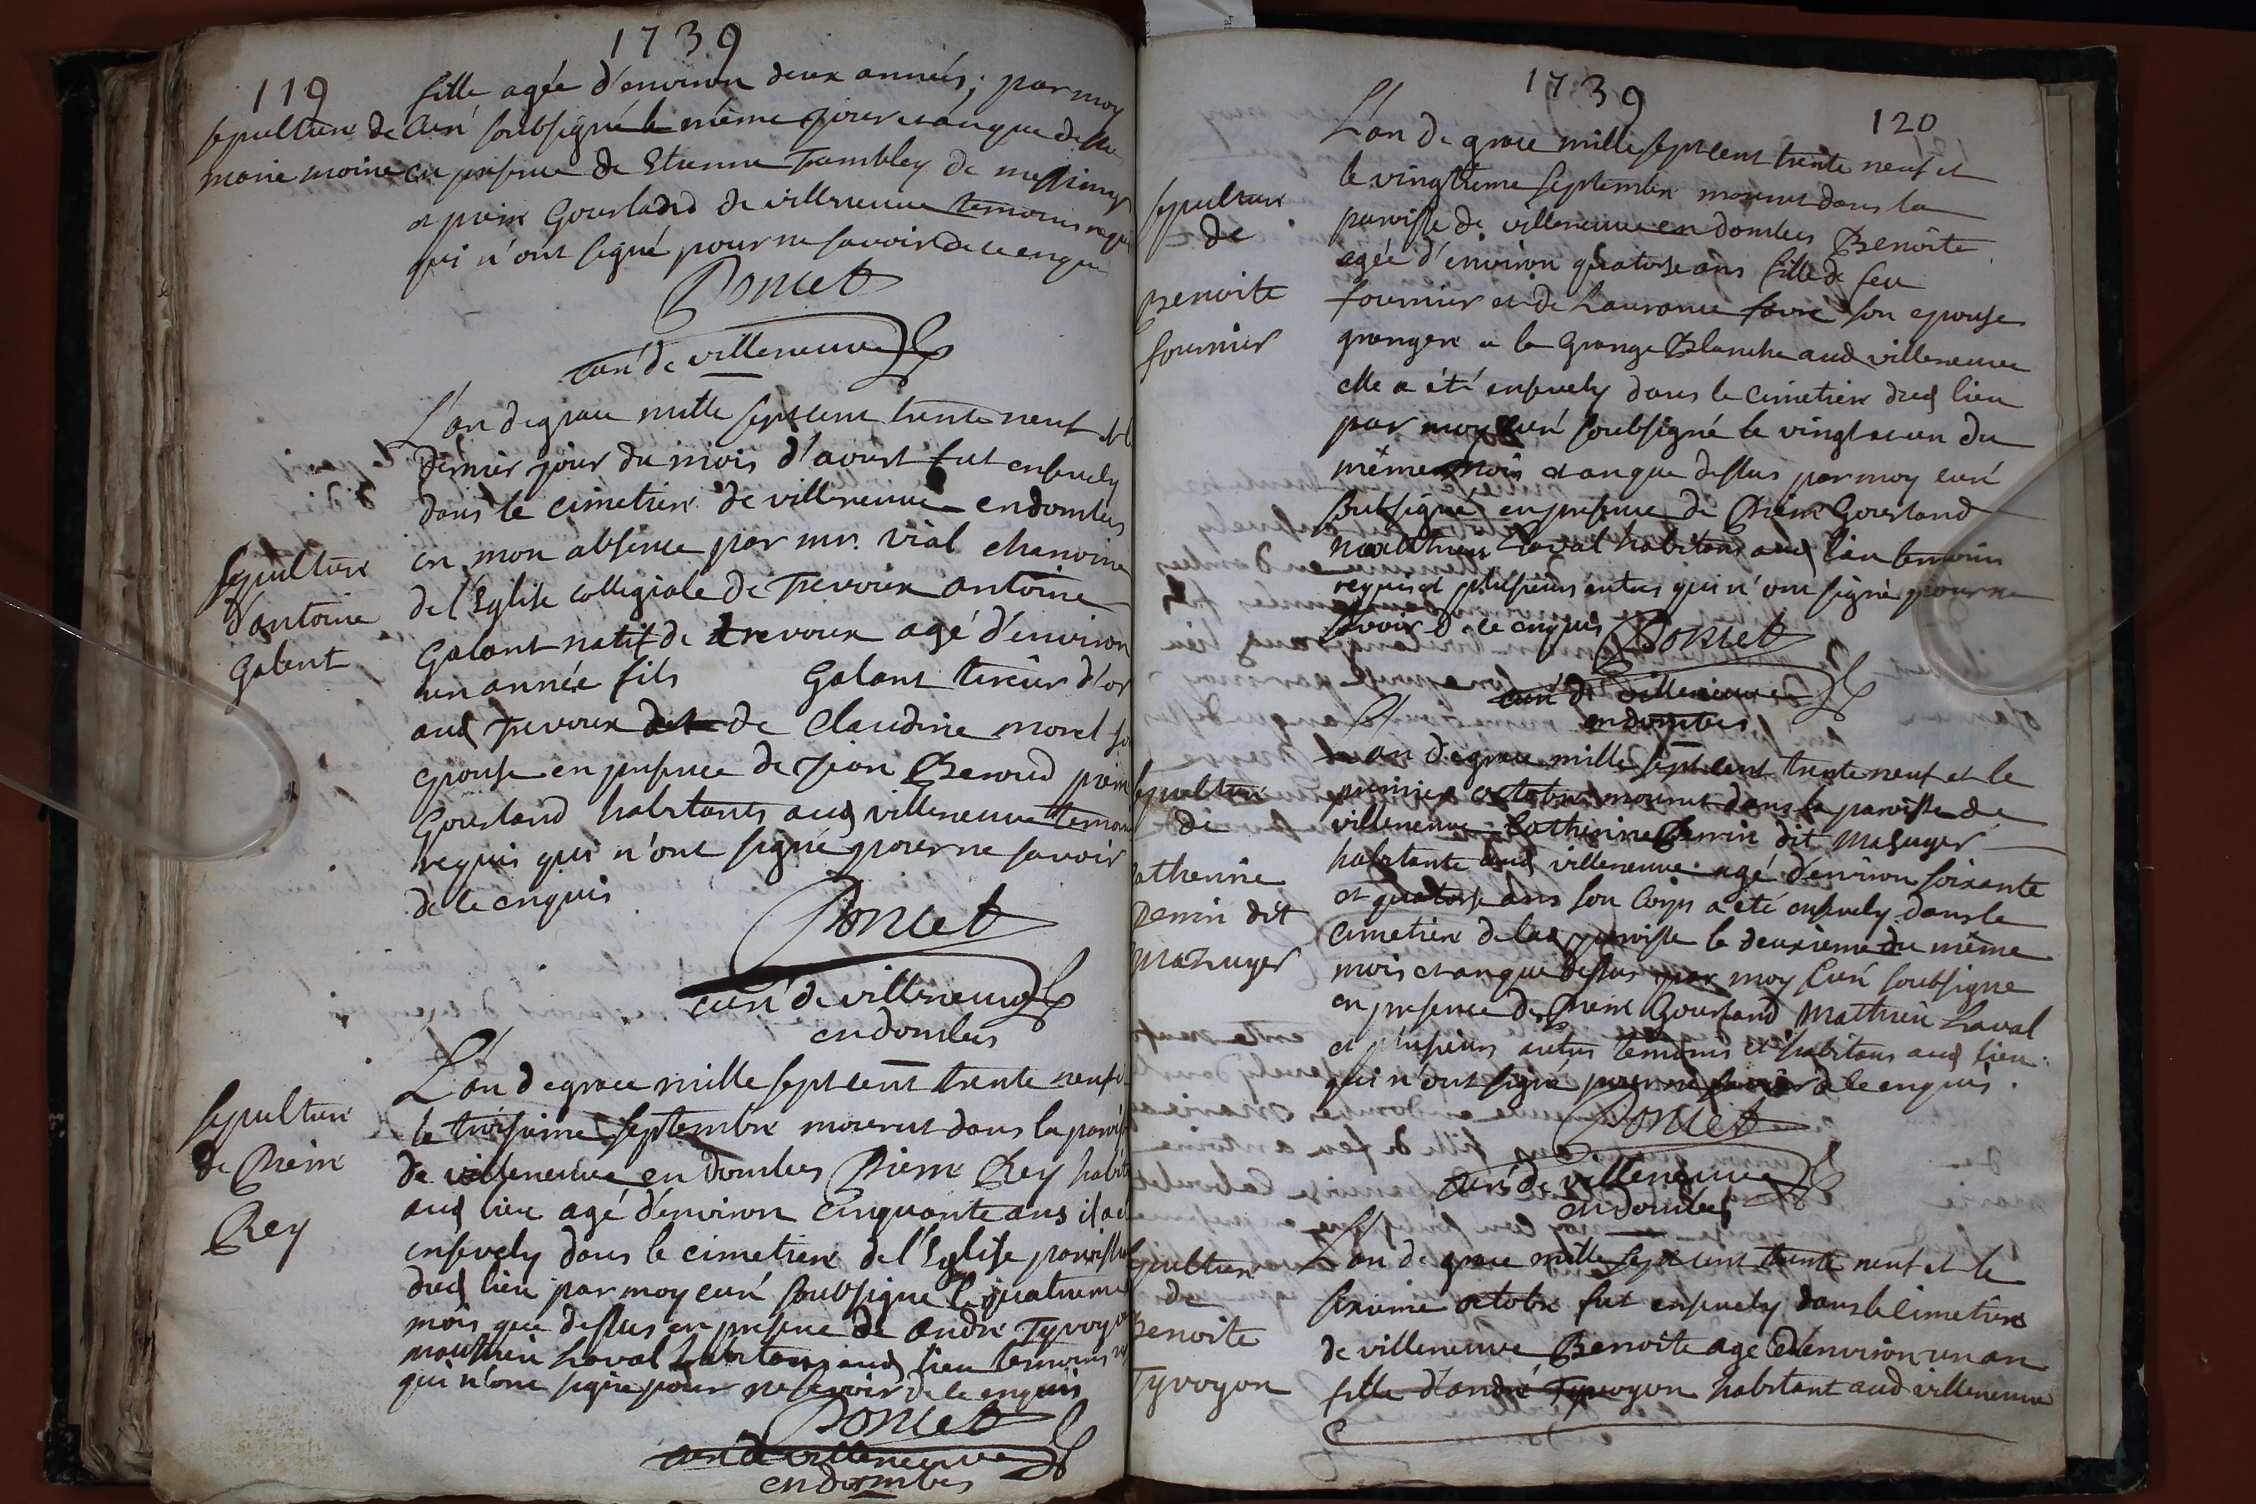 1739
119
fille agée d'environ deux années; par moy
sepulture de
marie moine
curé soubsigné le même jour et an que dessus
en presence de Etienne Trambley de messimy
et pierre Gourland de villeneuve temoins requis
qui n'ont signé pour ne savoir de ce enquis
Poncet
curé de villeneuve
sepulture
d'antoine
Galent
L'an de grace mille sept cent trente neuf et le
dernier jour du mois d'aoust fut ensevely
dans le cimetiere de villeneuve en dombes
en mon absence par mr. Vial chanoine
de l'Eglise collegiale de Trevoux antoine
Galant natif de trevoux agé d'environ
un année fils Galant tireur d'or
aud Trevoux de Claudine morel son
epouse en presence de Jean Beroud pierre
Gourland habitants aud villeneuve temoins
requis qui n'ont signé pour ne savoir
de ce enquis
Poncet
curé de villeneuve
en dombes
sepulture
de Pierre
Rey
L'an de grace mille sept cent trente neuf et
le troisieme septembre mourut dans la paroisse
de villeneuve en dombes Pierre Rey habitant
aud lieu agé d'environ cinquante ans il a été
ensevely dans le cimetiere de l'Eglise paroissiale
dud lieu par moy curé soubsigné le quatrieme
mois que dessus en presence de andré Tyvoyon
mathieu Laval habitans aud lieu temoins
qui n'ont signé pour ne savoir de ce enquis
Poncet
curé de villeneuve
en dombes
1739
120
sepulture
de
Benoite
fournier
L'an de grace mille sept cent trente neuf et
le vingtieme septembre mourut dans la
paroisse de villeneuve en dombes Benoite
agée d'environ quatorse ans fille de feu
fournier et de Laurance favre son epouse
grangere a la Grange Blanche aud villeneuve
elle a été ensevely dans le cimetiere dud lieu
par moy curé soubsigné le vingt et un du
même mois et an que dessus par moy curé
soubsigné en presence de Pierre Gourland
mathieu Laval habitans aud lieu temoins
requis et plusieurs autres qui n'ont signé pour ne
savoir de ce enquis Poncet
curé de villeneuve
en dombes
sepulture
de
Catherine
Perrin dit
Mazuyer
L'an de grace mille sept cent trente neuf et le
premier octobre mourut dans la paroisse de
villeneuve Catherine Perrin dit Masuyer
habitante aud villeneuve agé d'environ soixante
et quatorse ans son corps a été ensevely dans le
cimetiere de lad paroisse le deuxieme du même
mois et an que dessus par moy curé soubsigne
en presence de Pierre Gourland Mathieu Laval
et plusieurs autres temoins et habitans aud lieu
qui n'ont signé pour ne savoir de ce enquis.
Poncet
curé de villeneuve
en dombes
sepulture
de
Benoite
Tyvoyon
L'an de grace mille sept cent trente neuf et le
sixieme octobre fut ensevely dans le cimetiere
de villeneuve Benoite agé d'environ un an
fille d'andré Tyvoyon habitant aud villeneuve